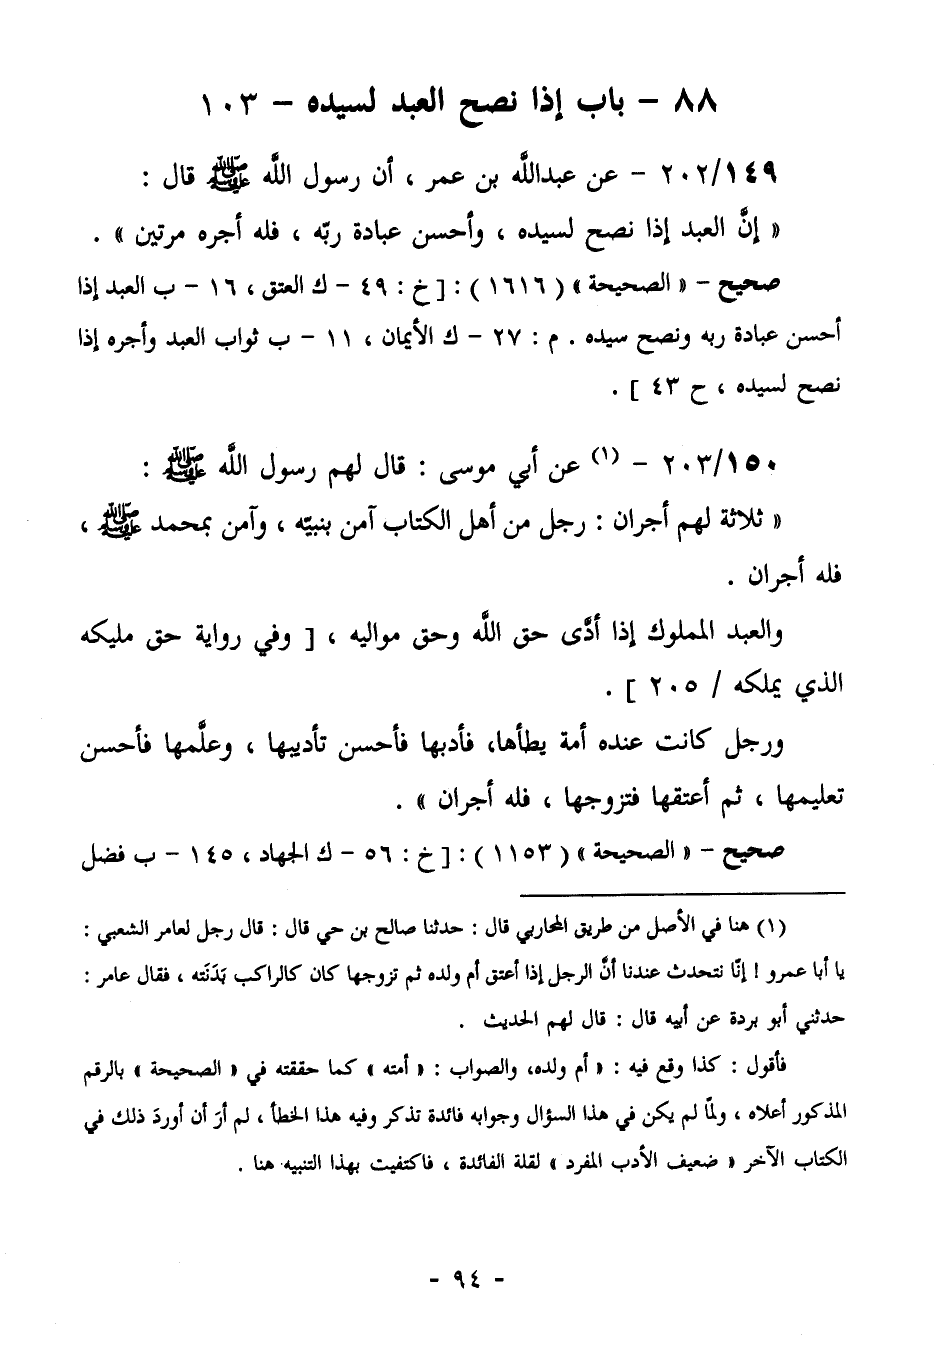 ٨٨ – باب إذا نصح العبد لسيده – ١٠٣
٢٠٢/١٤٩ – عن عبدالله بن عمر ، أن رسول اللَّه ﷺ قال :
« إنَّ العبد إذا نصح لسيده ، وأحسن عبادة ربّه ، فله أجره مرتين » .
صحيح – « الصحيحة » ( ١٦١٦ ) : [ خ : ٤٩ – ك العتق ، ١٦ – ب العبد إذا
أحسن عبادة ربه ونصح سيده . م : ٢٧ – ك الأيمان ، ١١ – ب ثواب العبد وأجره إذا
نصح لسيده ، ح ٤٣ ] .
٢٠٣/١٥٠ – (١) عن أبي موسى : قال لهم رسول اللَّه ﷺ :
« ثلاثة لهم أجران : رجل من أهل الكتاب آمن بنبيّه ، وآمن بمحمد ﷺ ،
فله أجران .
والعبد المملوك إذا أدَّى حق اللَّه وحق مواليه ، [ وفي رواية حق مليكه
الذي يملكه / ٢٠٥ ] .
ورجل كانت عنده أمة يطأها، فأدبها فأحسن تأديبها ، وعلَّمها فأحسن
تعليمها ، ثم أعتقها فتزوجها ، فله أجران » .
صحيح – « الصحيحة » ( ١١٥٣ ) : [ خ : ٥٦ – ك الجهاد ، ١٤٥ – ب فضل
(١) هنا في الأصل من طريق المحاربي قال : حدثنا صالح بن حي قال : قال رجل لعامر الشعبي :
يا أبا عمرو ! إنّا نتحدث عندنا أنَّ الرجل إذا أعتق أم ولده ثم تزوجها كان كالراكب بَدَنَته ، فقال عامر :
حدثني أبو بردة عن أبيه قال : قال لهم الحديث .
فأقول : كذا وقع فيه : « أم ولده، والصواب : « أمته » كما حققته في « الصحيحة » بالرقم
المذكور أعلاه ، ولمّا لم يكن في هذا السؤال وجوابه فائدة تذكر وفيه هذا الخطأ ، لم أرَ أن أوردَ ذلك في
الكتاب الآخر « ضعيف الأدب المفرد » لقلة الفائدة ، فاكتفيت بهذا التنبيه هنا .
- ٩٤ -